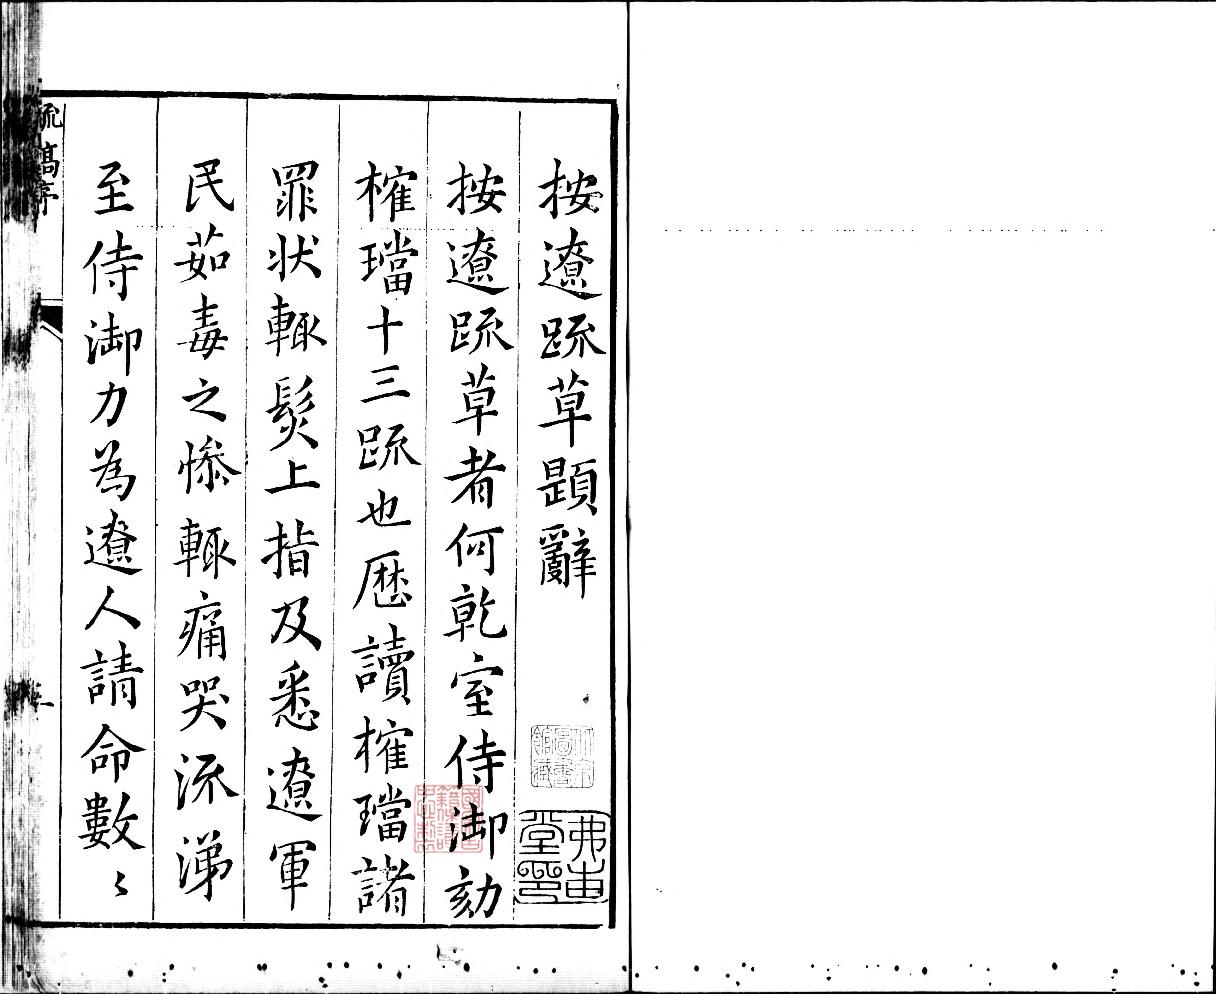 按遼疏草題辭
按遼疏草者何乾室侍御劾
榷璫十三疏也歷讀榷璫諸
罪狀輒髮上指及悉遼軍
民茹毒之慘輒痛哭流涕
至侍御力為遼人請命數〻
疏稿序